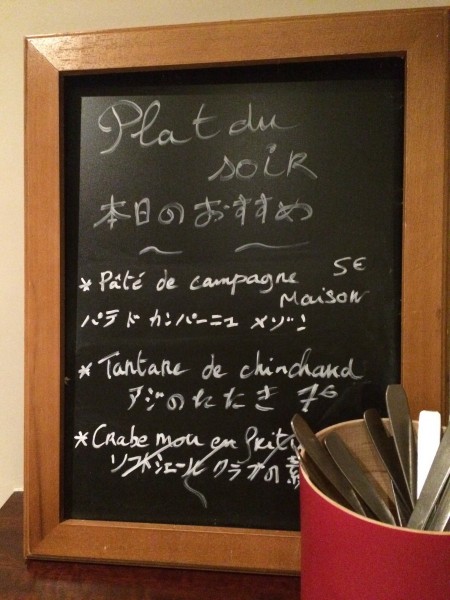 Plat du
soir
本日のおすすめ
* Pâté de campagne 5€
Maison
パテド カンパーニュ メゾン
* Tartare de chinchard
アジのたたき 7€
* Crabe mou en frit
ソフトシェール クラブの